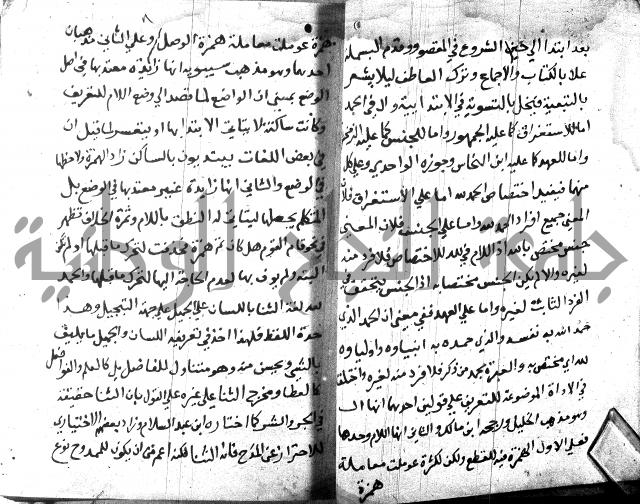 بعد ابتدا الي حين الشروع في المقصود وقدم البسملة
عملا بالكتاب والاجماع وترك العاطف ليلا يشعر
بالتبعية فيخل بالتسوية في الابتدا بهما وال في الحمد
اما للاستغراق كما عليه الجمهور واما للجنس كما عليه الزمخشري
واما للعهد كما عليه ابن النحاس وجوزه الواحدي وعلي كل
منها فيفيد اختصاص الحمد لله اما علي الاستغراق فلان
المعني جميع افراد الحمد لله واما علي الجنس فلان المعني
جنس مختص بالله اذ اللام في لله للاختصاص فلا فرد منه
لغيره والا لم يكن الجنس مختصا به اذ الجنس يتحقق في
الفرد الثابت لغيره واما علي العهد ففي معني ان الحمد الذي
حمد الله به نفسه والذي حمده به انبياوه واولياوه
لله اي مختص به والعبرة بحمد من ذكر فلا فرد منه لغيره واختلف
في الاداة الموضوعة للتعريف علي قولين احدهما انها ال
وهو مذهب الخليل ورجحه ابن مالك والثاني انها اللام وحدها
فعلي الاول الهمزة فيه للقطع ولكن لكثرة عوملت معاملة
همزة
همزة عوملت معاملة همزة الوصل وعلي الثاني مذهبان
احدهما وهو مذهب سيبويه انها زائدة معتد بها في اصل
الوضع بمعني ان الواضع لما قصد الي وضع اللام للتعريف
وكانت ساكنة لا يتاتي الابتدا بها او يتعسر لما قيل ان
في بعض اللغات يبتديون بالساكن زاد الهمزة ولاحظها
في الوضع والثاني انها زايدة غير معتد بها في الوضع بل
المتكلم يجعلها ليتاتي له النطق باللام وثمرة الخلاف تظهر
في نحو قام القوم هل كان ثم همزة فحذفت لتحرك ما قبلها او لم تكن
البتة ولم يوت بها لعدم الحاجة اليها لتحرك ما قبلها والحمد
لغة الثنا باللسان علي الجميل علي جهة التبجيل وهذا
حده اللفظ فلهذا اخذ في تعريفه اللسان والجميل ما يليق
بالشي ويحسن منه وهو متناول للفاضل كالعلم والفواضل
كالعطا ومخرج الثنا علي غيره علي القول بان الثنا حقيقة
في الخير والشر كما اختاره ابن عبد السلام وزاد بعضهم الاختياري
للاحتراز عن المدح فانه الثنا لكنه اعم من ان يكون للممدوح نوع
جامعة النجاح الوطنية